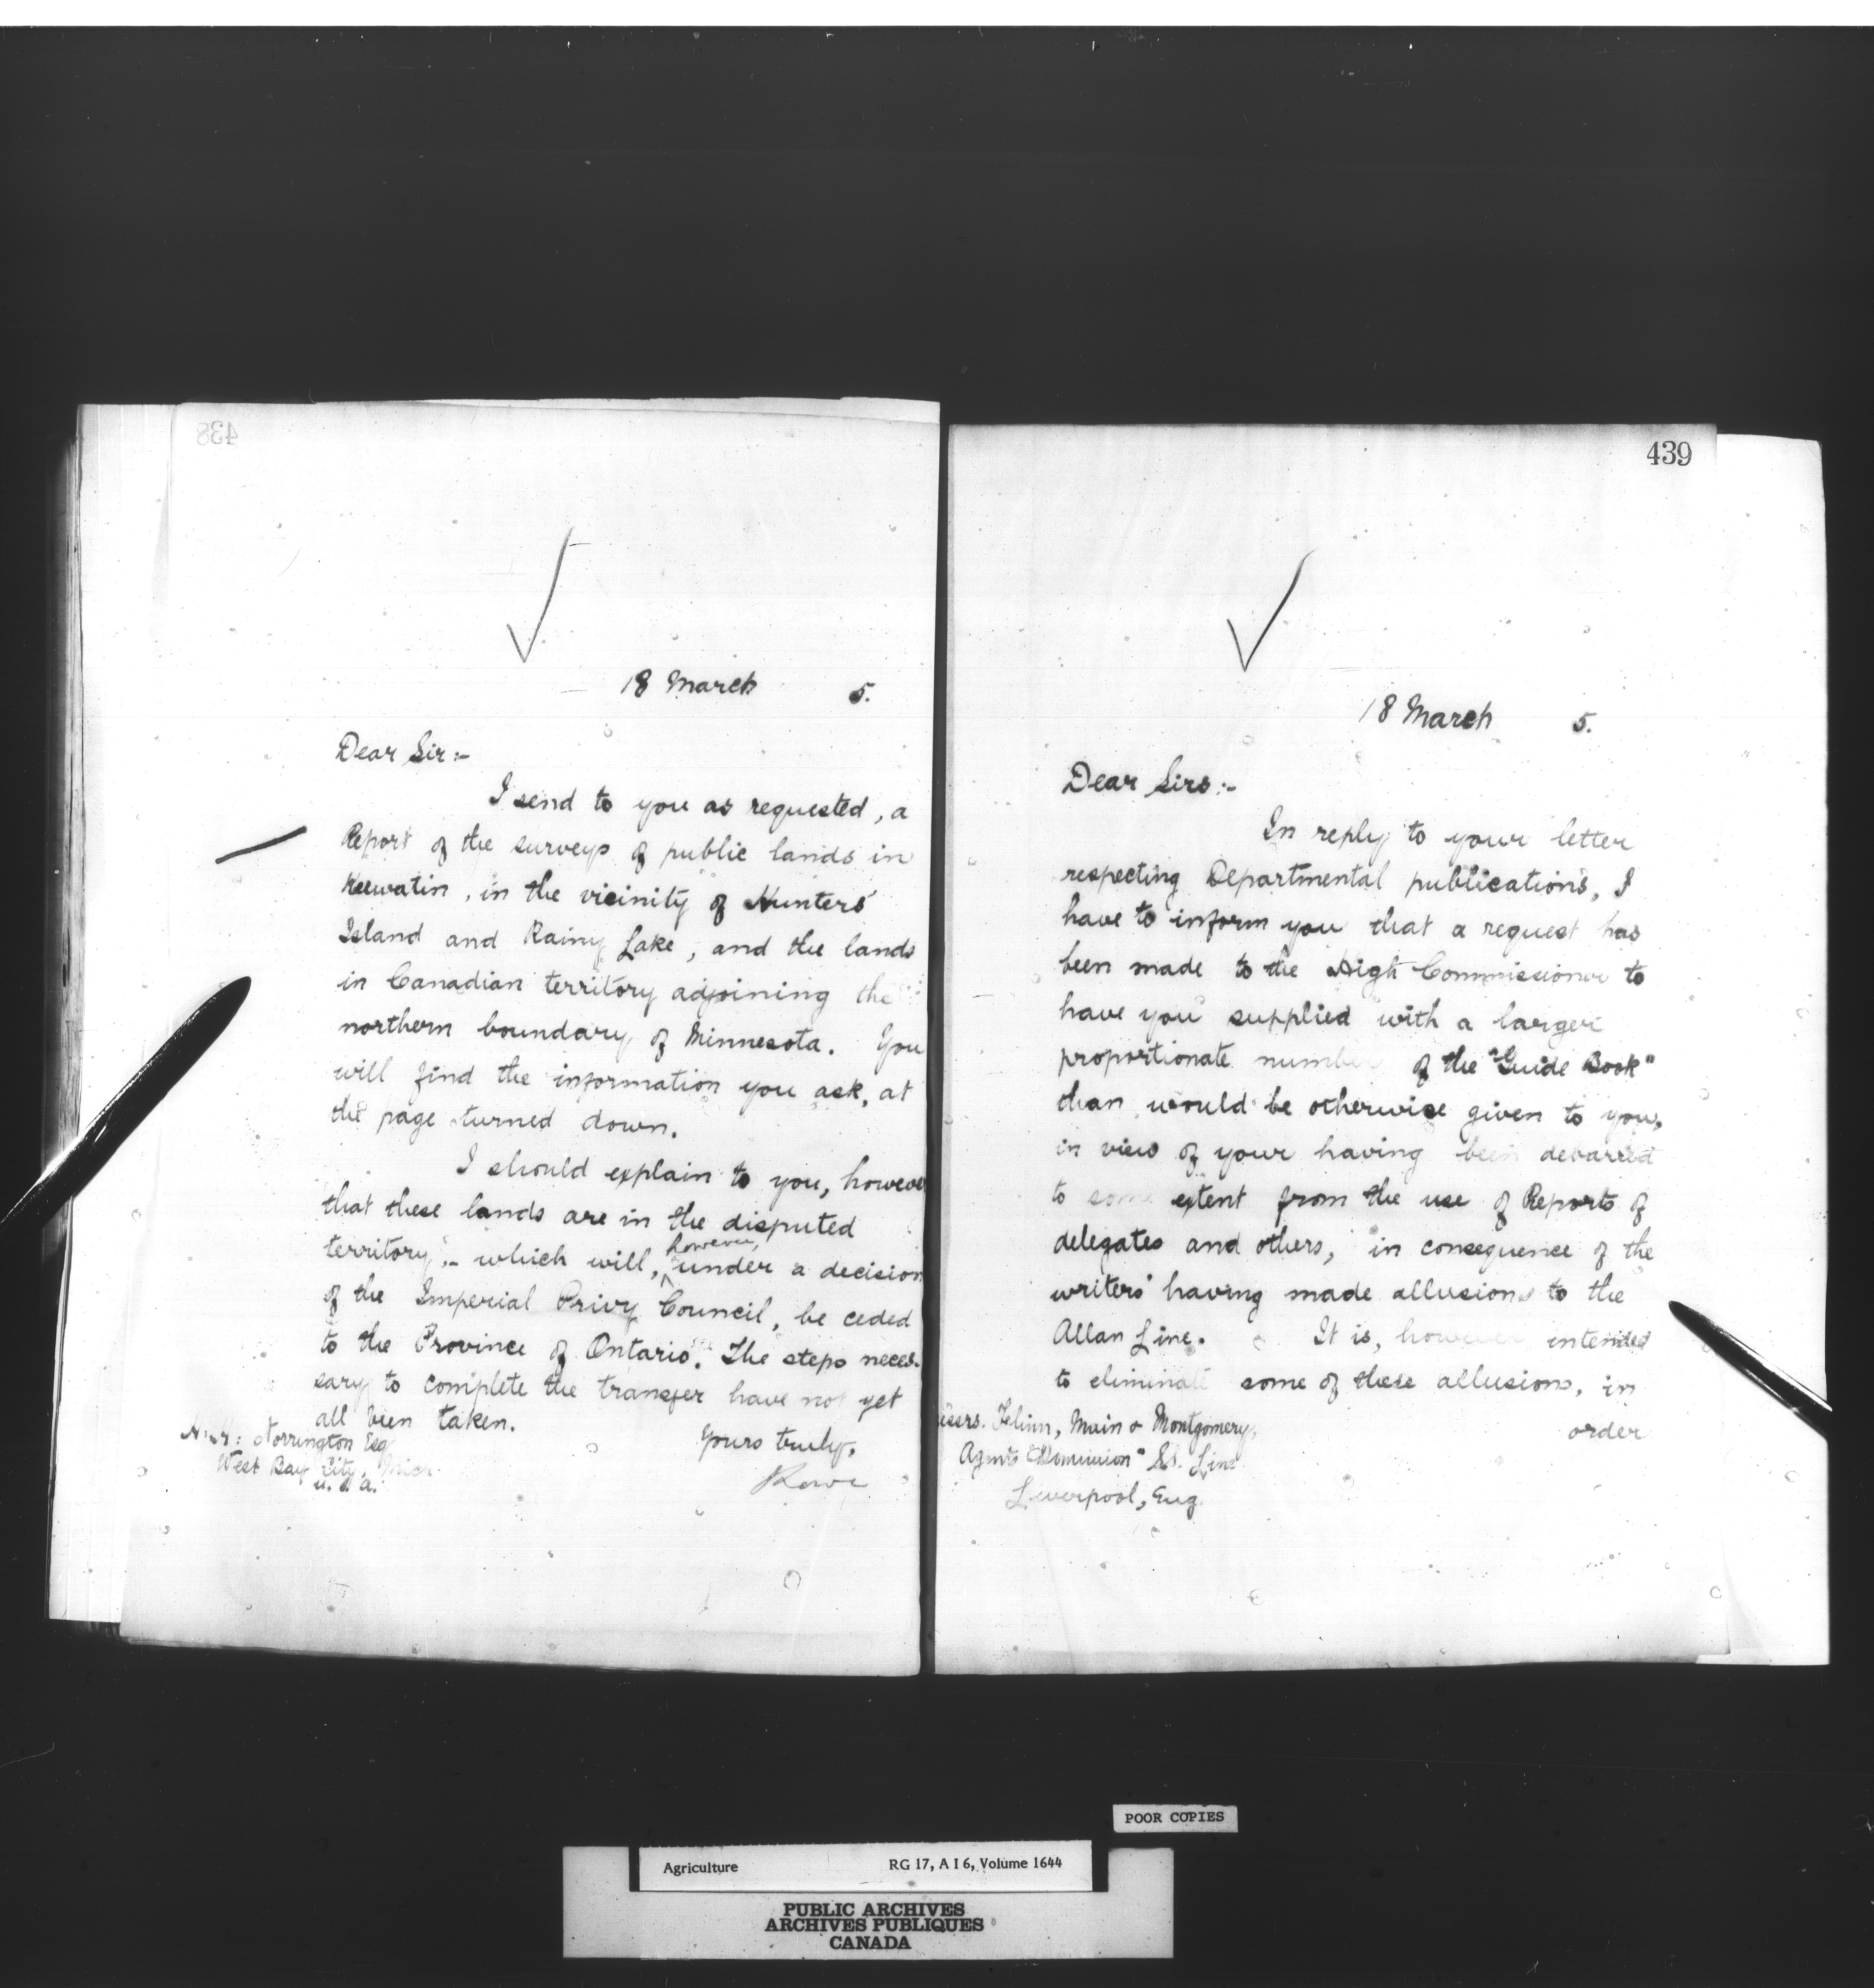 438
18 March 5.
Dear Sir:-
I send to you as requested, a
Report of the surveys of public lands in
Keewatin, in the vicinity of Hunters
Island and Rainy Lake, and the lands
in Canadian territory adjoining the
northern boundary of Minnesota. You
will find the information you ask, at
the page turned down.
I should explain to you, however
that these lands are in the disputed
territory,- which will, however, under a decision
of the Imperial Privy Council, be ceded
to the Province of Ontario. The steps neces-
sary to complete the transfer have not yet
all been taken.
Yours truly,
Norrington Esq
West Bay City, Mich.
U.S.A.
439
18 March 5.
Dear Sirs:-
In reply to your letter
respecting Departmental publications, I
have to inform you that a request has
been made to the High Commissioner to
have you supplied with a larger
proportionate number of the "Guide Book"
than would be otherwise given to you,
in view of your having been debarred
to some extent from the use of Reports of
delegates and others, in consequence of the
writers' having made allusions to the
Allan Line. It is, however intended
to eliminate some of these allusions, in
order
Messrs. Flinn, Main & Montgomery,
Agents "Dominion" SS. Line
Liverpool, Eng.
POOR COPIES
Agriculture RG 17, A I 6, Volume 1644
PUBLIC ARCHIVES
ARCHIVES PUBLIQUES
CANADA